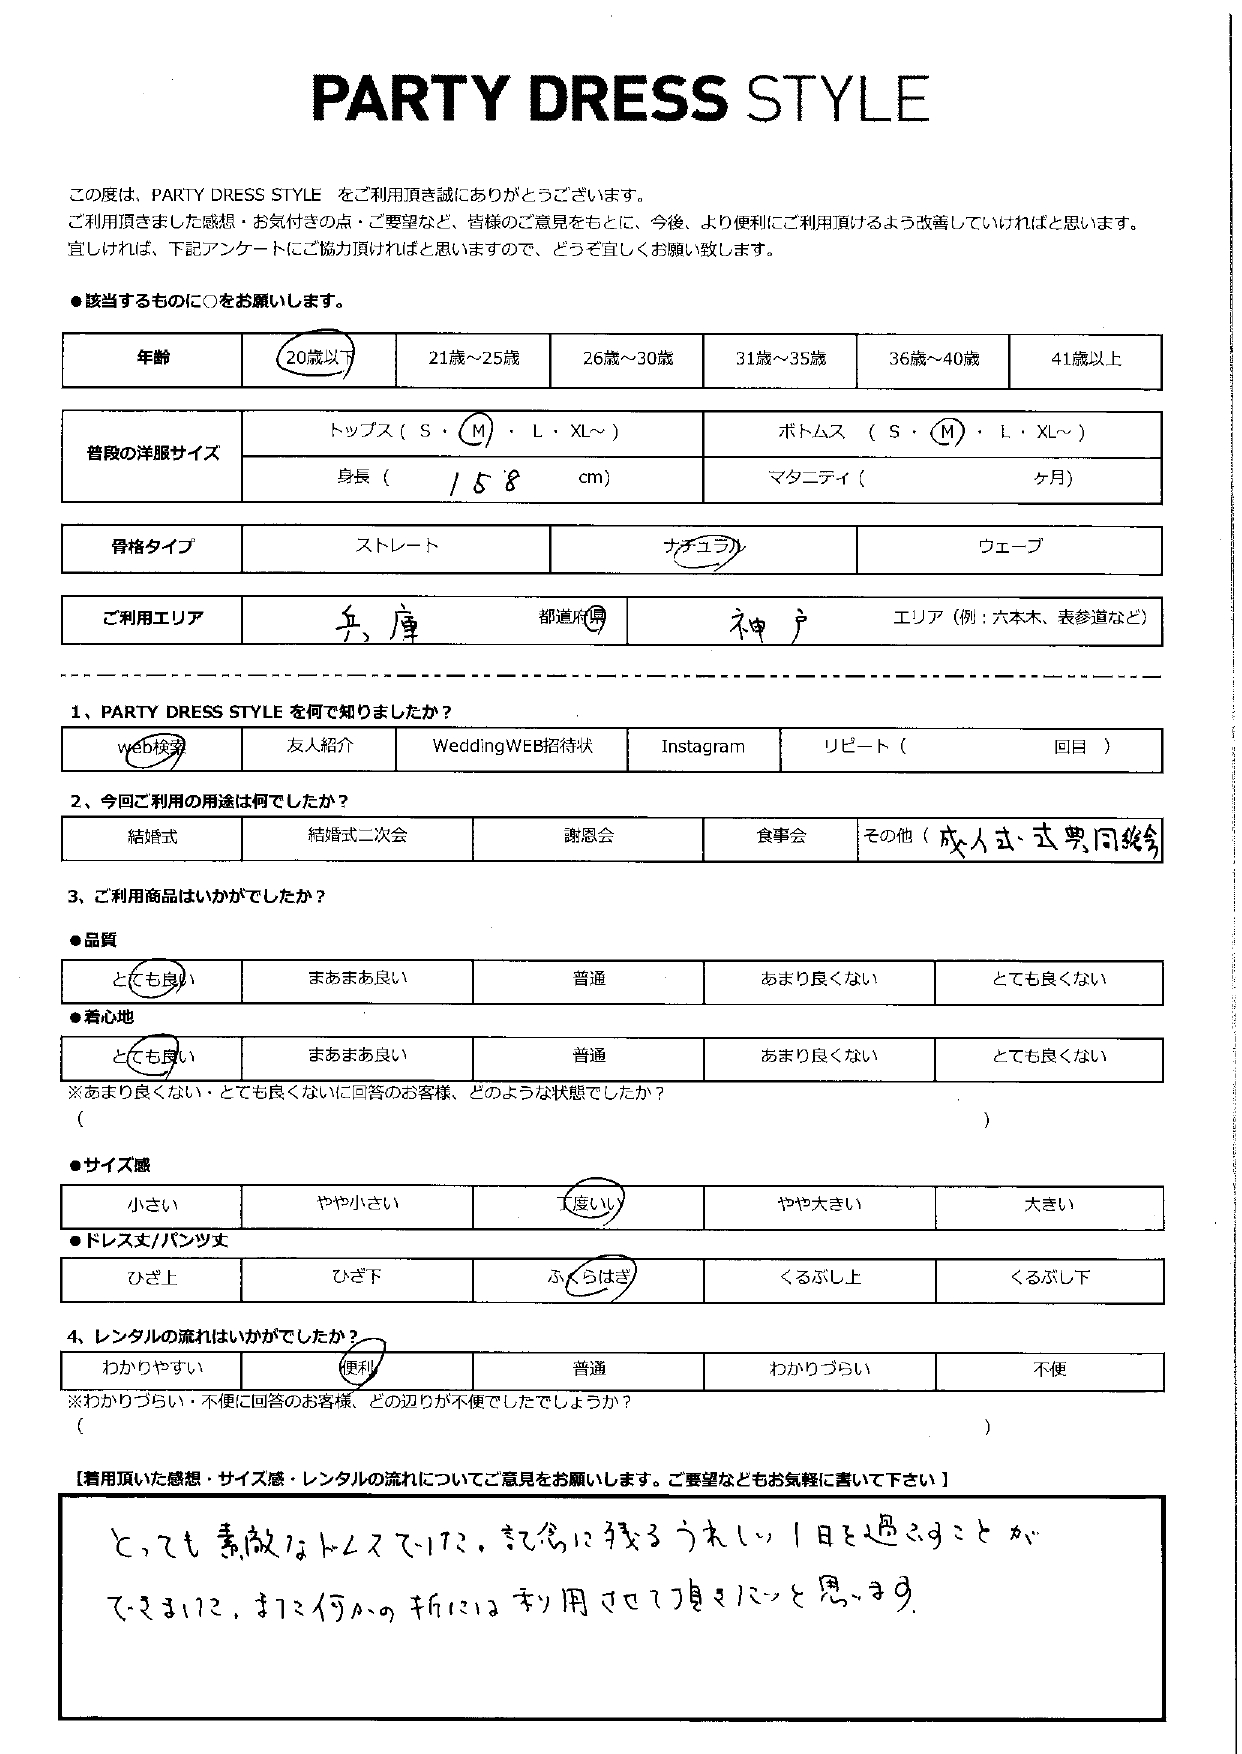 PARTY DRESS STYLE
この度は、PARTY DRESS STYLE をご利用頂き誠にありがとうございます。
ご利用頂きました感想・お気付きの点・ご要望など、皆様のご意見をもとに、今後、より便利にご利用頂けるよう改善していければと思います。
宜しければ、下記アンケートにご協力頂ければと思いますので、どうぞ宜しくお願い致します。
●該当するものに○をお願いします。
年齢 20歳以下 21歳～25歳 26歳～30歳 31歳～35歳 36歳～40歳 41歳以上
普段の洋服サイズ トップス ( S ・ M ・ L ・ XL～ ) ボトムス ( S ・ M ・ L ・ XL～ )
身長 ( 158 cm) マタニティ ( ケ月)
骨格タイプ ストレート ナチュラル ウェーブ
ご利用エリア 兵庫 都道府県 神戸 エリア（例：六本木、表参道など）
1、PARTY DRESS STYLE を何で知りましたか？
web検索 友人紹介 WeddingWEB招待状 Instagram リピート（ 回目 ）
2、今回ご利用の用途は何でしたか？
結婚式 結婚式二次会 謝恩会 食事会 その他（ 成人式・式典、同総会
3、ご利用商品はいかがでしたか？
●品質
とても良い まあまあ良い 普通 あまり良くない とても良くない
●着心地
とても良い まあまあ良い 普通 あまり良くない とても良くない
※あまり良くない・とても良くないに回答のお客様、どのような状態でしたか？
（ ）
●サイズ感
小さい やや小さい 丁度いい やや大きい 大きい
●ドレス丈/パンツ丈
ひざ上 ひざ下 ふくらはぎ くるぶし上 くるぶし下
4、レンタルの流れはいかがでしたか？
わかりやすい 便利 普通 わかりづらい 不便
※わかりづらい・不便に回答のお客様、どの辺りが不便でしたでしょうか？
（ ）
【着用頂いた感想・サイズ感・レンタルの流れについてご意見をお願いします。ご要望などもお気軽に書いて下さい】
とっても素敵なドレスでした。記念に残るうれしい1日を過ごすことが
できました。また何かの折には利用させて頂きたいと思います。